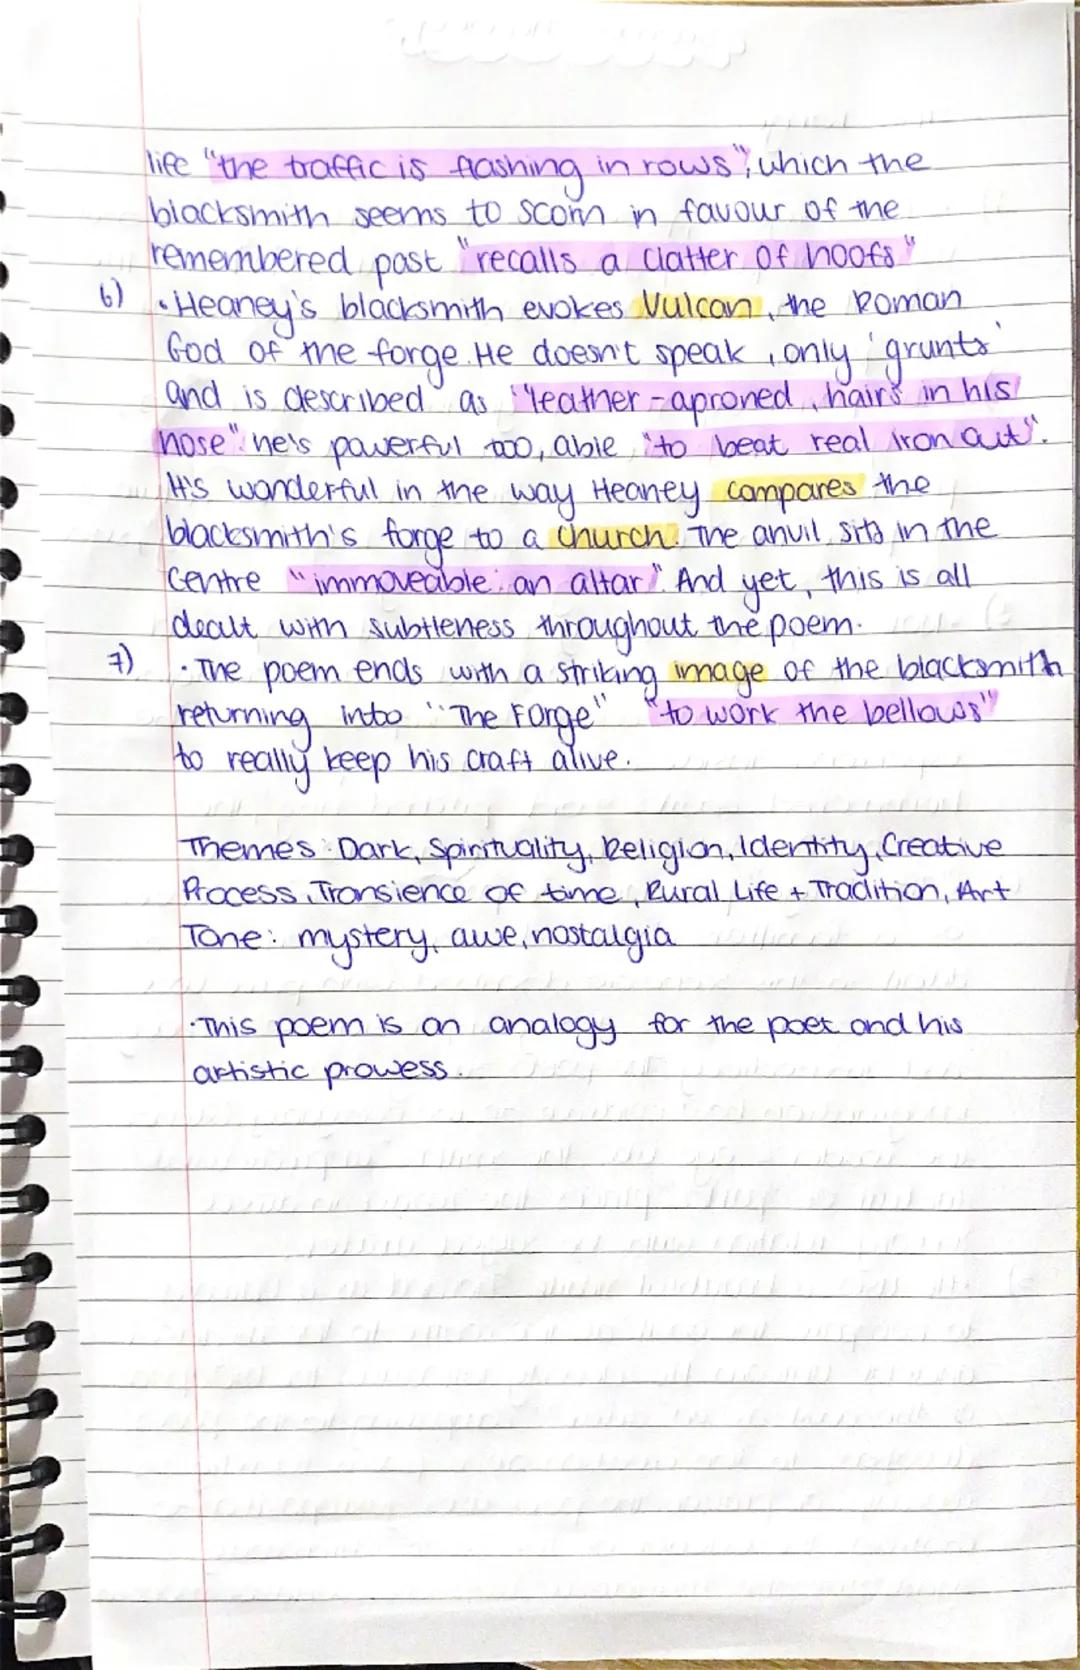 life "the traffic is flashing in rows", which the
blacksmith seems to scorn in favour of the
remembered past "recalls a clatter of hoofs"
6) • Heaney's blacksmith evokes Vulcan, the Roman
God of the forge. He doesn't speak, only 'grunts'
and is described as "leather-aproned, hairs in his
nose". he's powerful too, able "to beat real iron out".
It's wonderful in the way Heaney compares the
blacksmith's forge to a church. The anvil sits in the
centre "immoveable: an altar". And yet, this is all
dealt with subtleness throughout the poem.
7) • The poem ends with a striking image of the blacksmith
returning into "The Forge" "to work the bellows"
to really keep his craft alive.
Themes: Dark, Spirituality, Religion, Identity, Creative
Process, Transience of time, Rural Life + Tradition, Art
Tone: mystery, awe, nostalgia
• This poem is an analogy for the poet and his
artistic prowess.